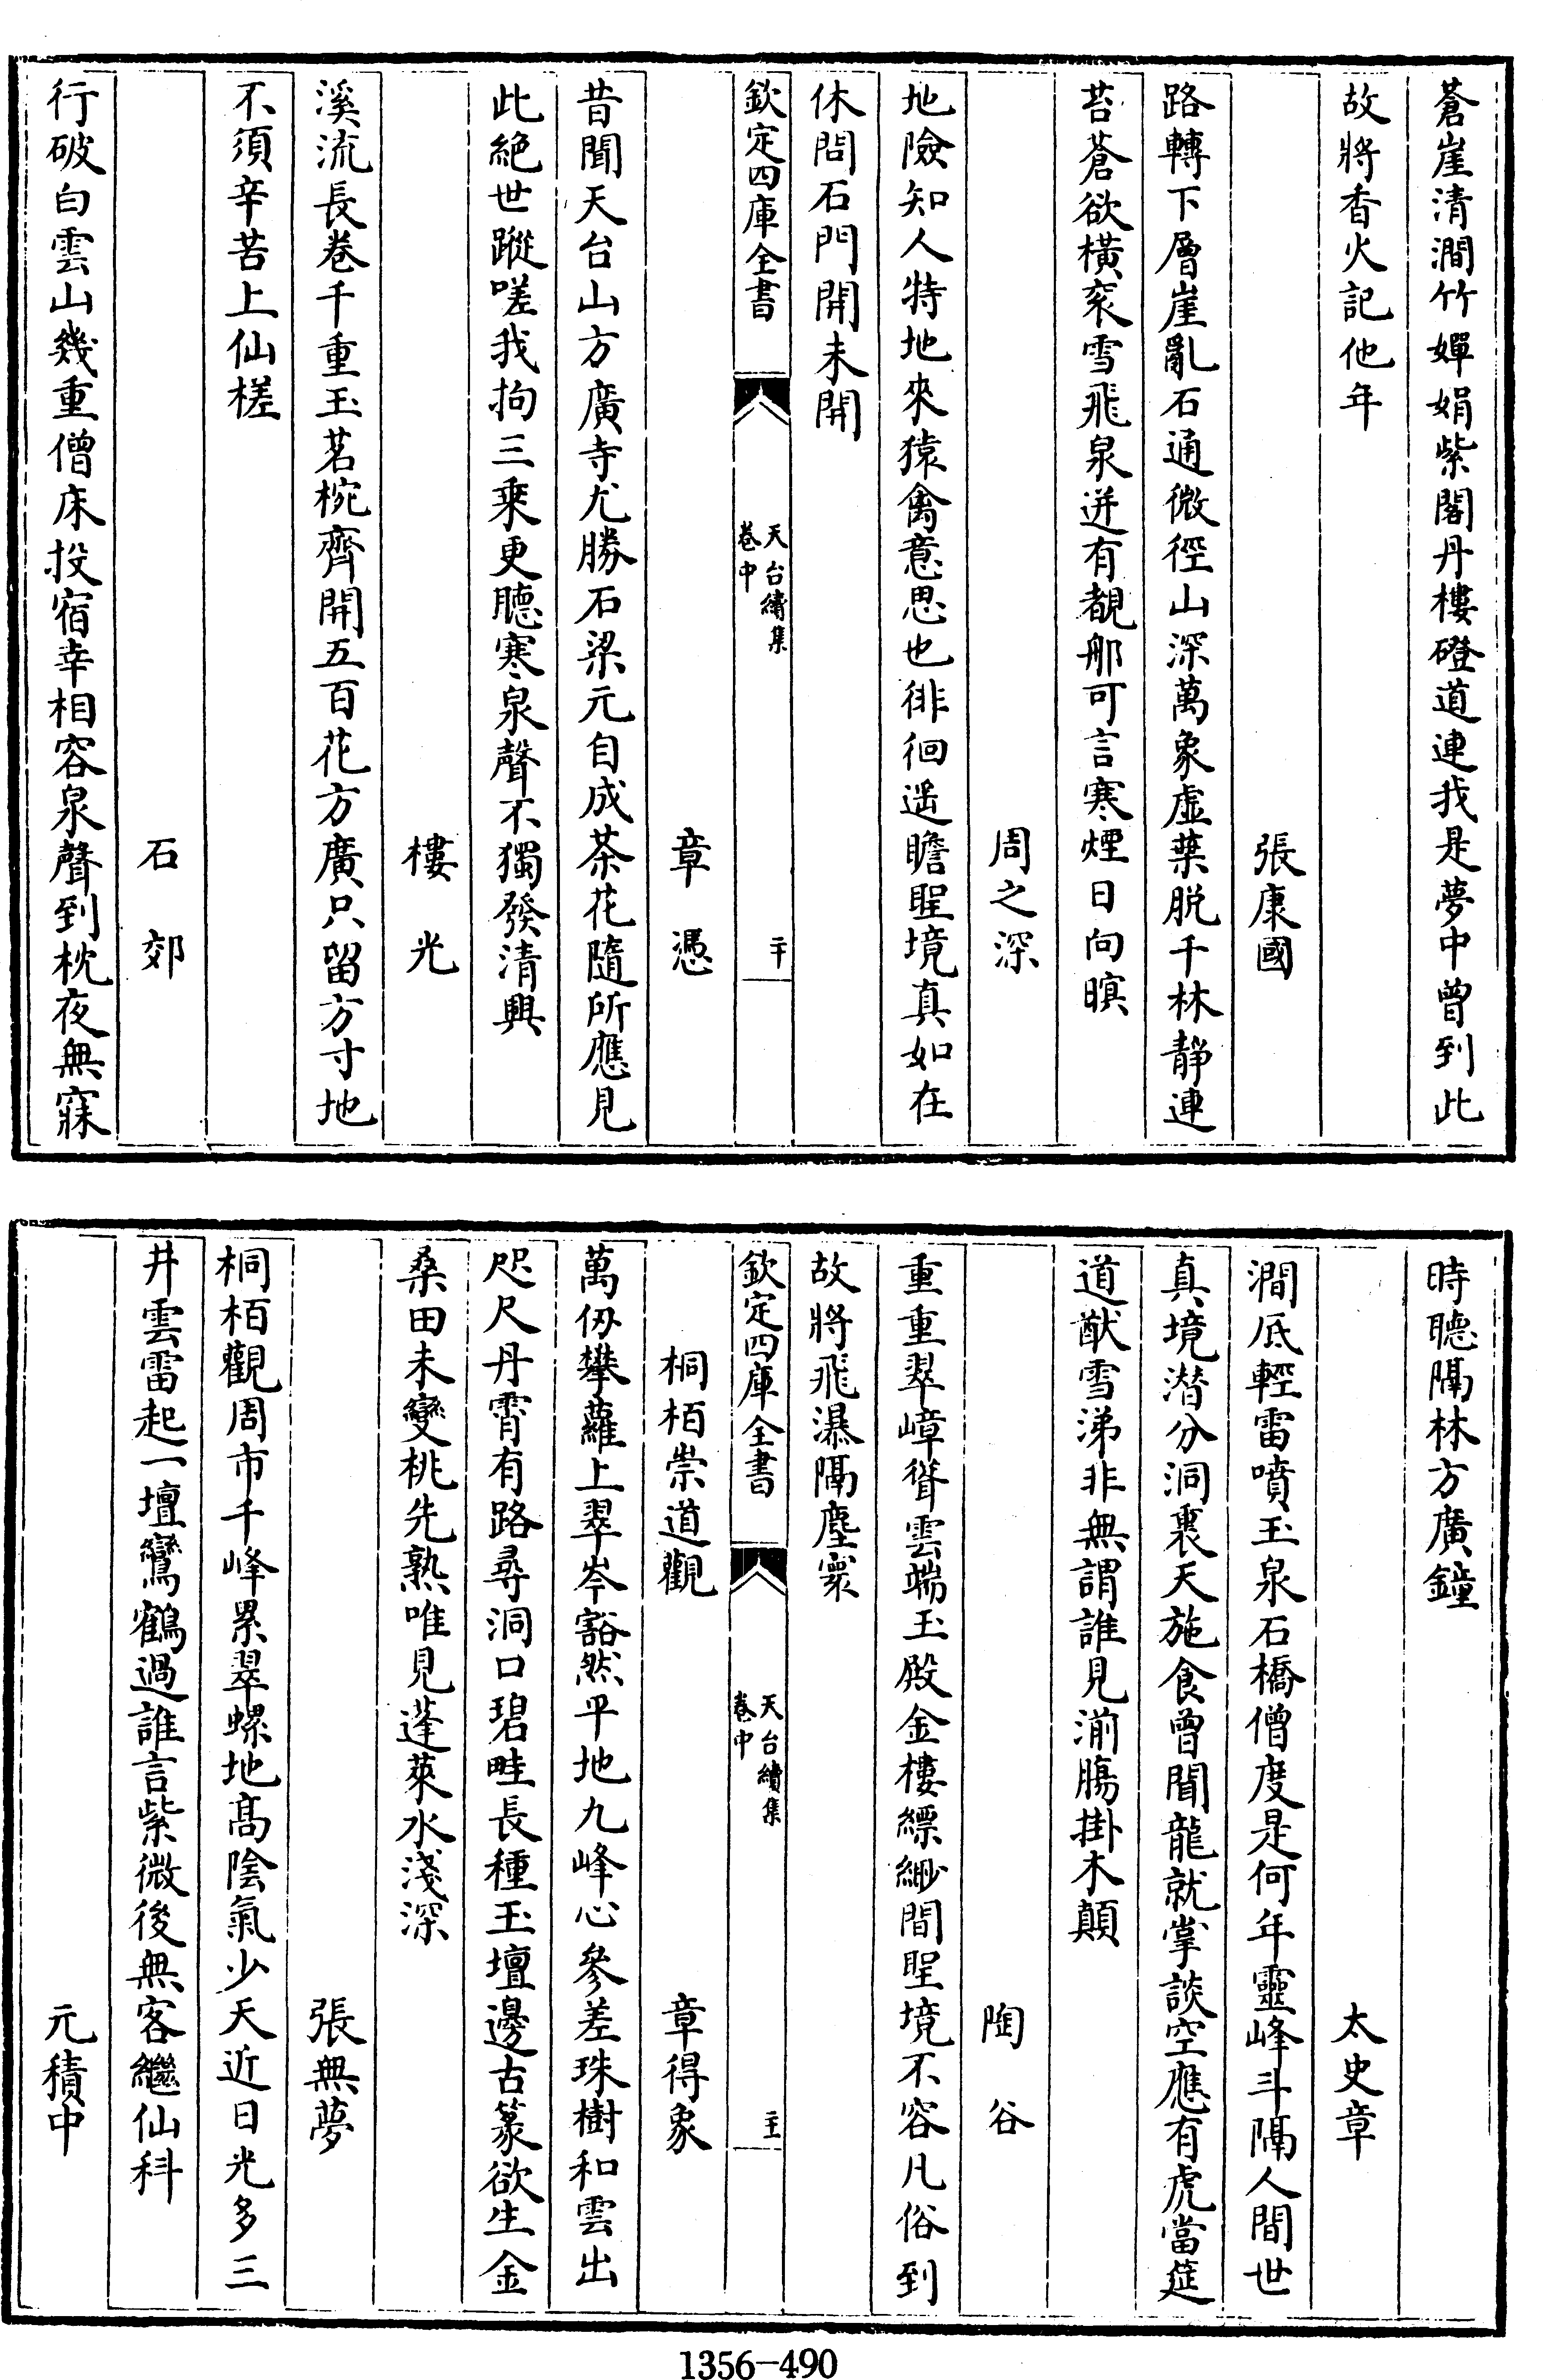 蒼崖清澗竹嬋娟紫閣丹樓磴道連我是夢中曾到此
故將香火記他年
張康國
路轉下層崖亂石通微徑山深萬象虚葉脱千林静連
苔蒼欲橫衮雪飛泉迸有覩那可言寒煙日向暝
周之深
地險知人特地來猿禽意思也徘徊遥瞻聖境真如在
休問石門開未開
欽定四庫全書
天台續集
卷中
二十
章憑
昔聞天台山方廣寺尤勝石梁元自成茶花隨所應見
此絶世蹤嗟我拘三乘更聽寒泉聲不獨發清興
樓光
溪流長卷千重玉茗椀齊開五百花方廣只留方寸地
不須辛苦上仙槎
石郊
行破白雲山幾重僧床投宿幸相容泉聲到枕夜無寐
時聽隔林方廣鐘
太史章
澗底輕雷噴玉泉石橋僧度是何年靈峰斗隔人間世
真境潛分洞裏天施食曾聞龍就掌談空應有虎當筵
道猷雪涕非無謂誰見湔腸掛木顛
陶谷
重重翠嶂聳雲端玉殿金樓縹緲間聖境不容凡俗到
故將飛瀑隔塵寰
欽定四庫全書
天台續集
卷中
二十一
桐栢崇道觀
章得象
萬仭攀蘿上翠岑豁然平地九峰心參差珠樹和雲出
咫尺丹霄有路尋洞口碧畦長種玉壇邊古篆欲生金
桑田未變桃先熟唯見蓬萊水淺深
張無夢
桐栢觀周市千峰累翠螺地髙陰氣少天近日光多三
井雲雷起一壇鸞鶴過誰言紫微後無客繼仙科
元積中
1356-490